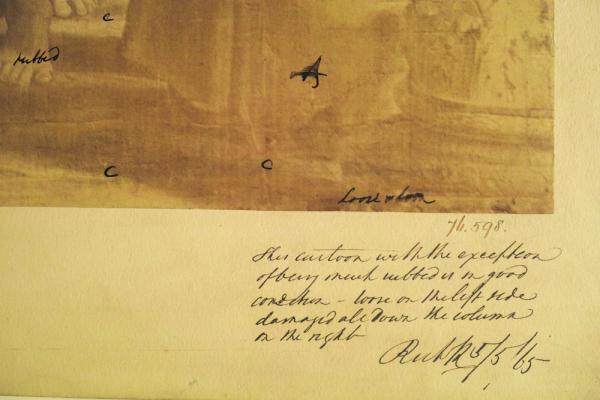 C
rubbed
A
C
C
loose & torn
76.598.
This cartoon with the exception
of being much rubbed is in good
condition - loose on the left side
damaged all down the column
on the right
5/5/65